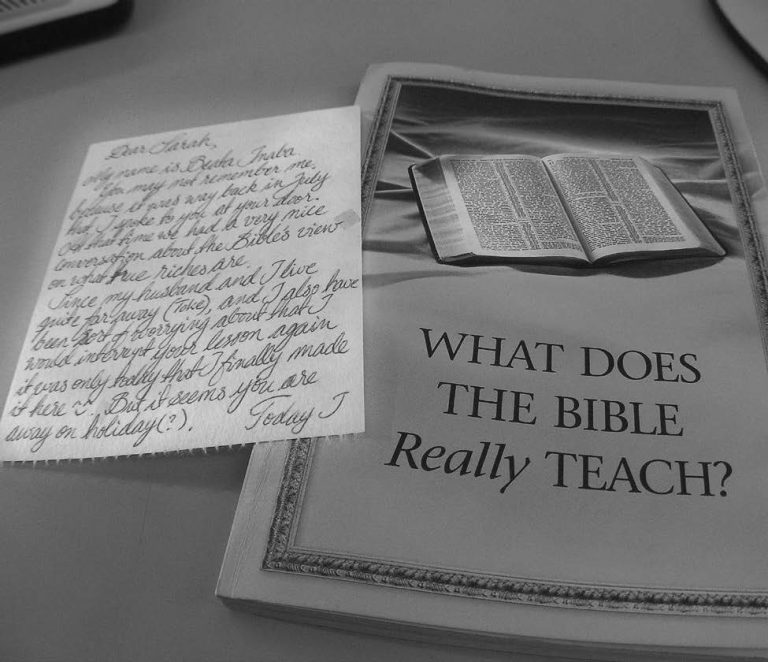 Dear Sarah,
My name is Beaha Inaba.
You may not remember me,
because it was way back in July
that I spoke to you at your door.
On that time we had a very nice
conversation about the Bible's view
on what true riches are.
Since my husband and I live
quite far away (Toke), and I also have
been sort of worrying about that I
would interrupt your lesson again
it was only today that I finally made
it here But it seems you are
away on holiday(?). Today I
WHAT DOES
THE BIBLE
Really TEACH?